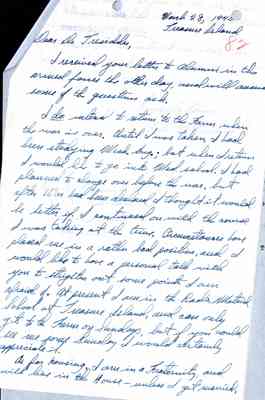 March 28, 1945
Treasure Island
Dear Dr. Tresidder,
I received your letter to alumni in the
armed forces the other day, and will answer
some of the questions asked.
I do intend to return to the Farm when
the war is over. Until I was taken, I had
been studying Mech. Eng.; but when I return
I would like to go into Med. school. I had
planned to change over before the war, but
after war had been declared I thought it would
be better if I continued on with the course
I was taking at the time. Circumstances have
placed me in a rather bad position, and I
would like to have a personal talk with
you to straighten out some points I am
afraid of. At present I am in the Radio Material
School at Treasure Island, and can only
get to the Farm on Sunday, but if you would
see me some Sunday I would certainly
appreciate it.
As for housing, I am in a Fraternity and
will live in the House — unless I get married.